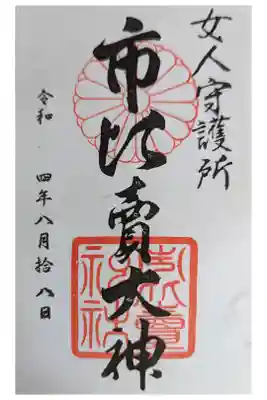 女人守護所
市比賣大神
市比賣
神社
令和 四年八月拾八日